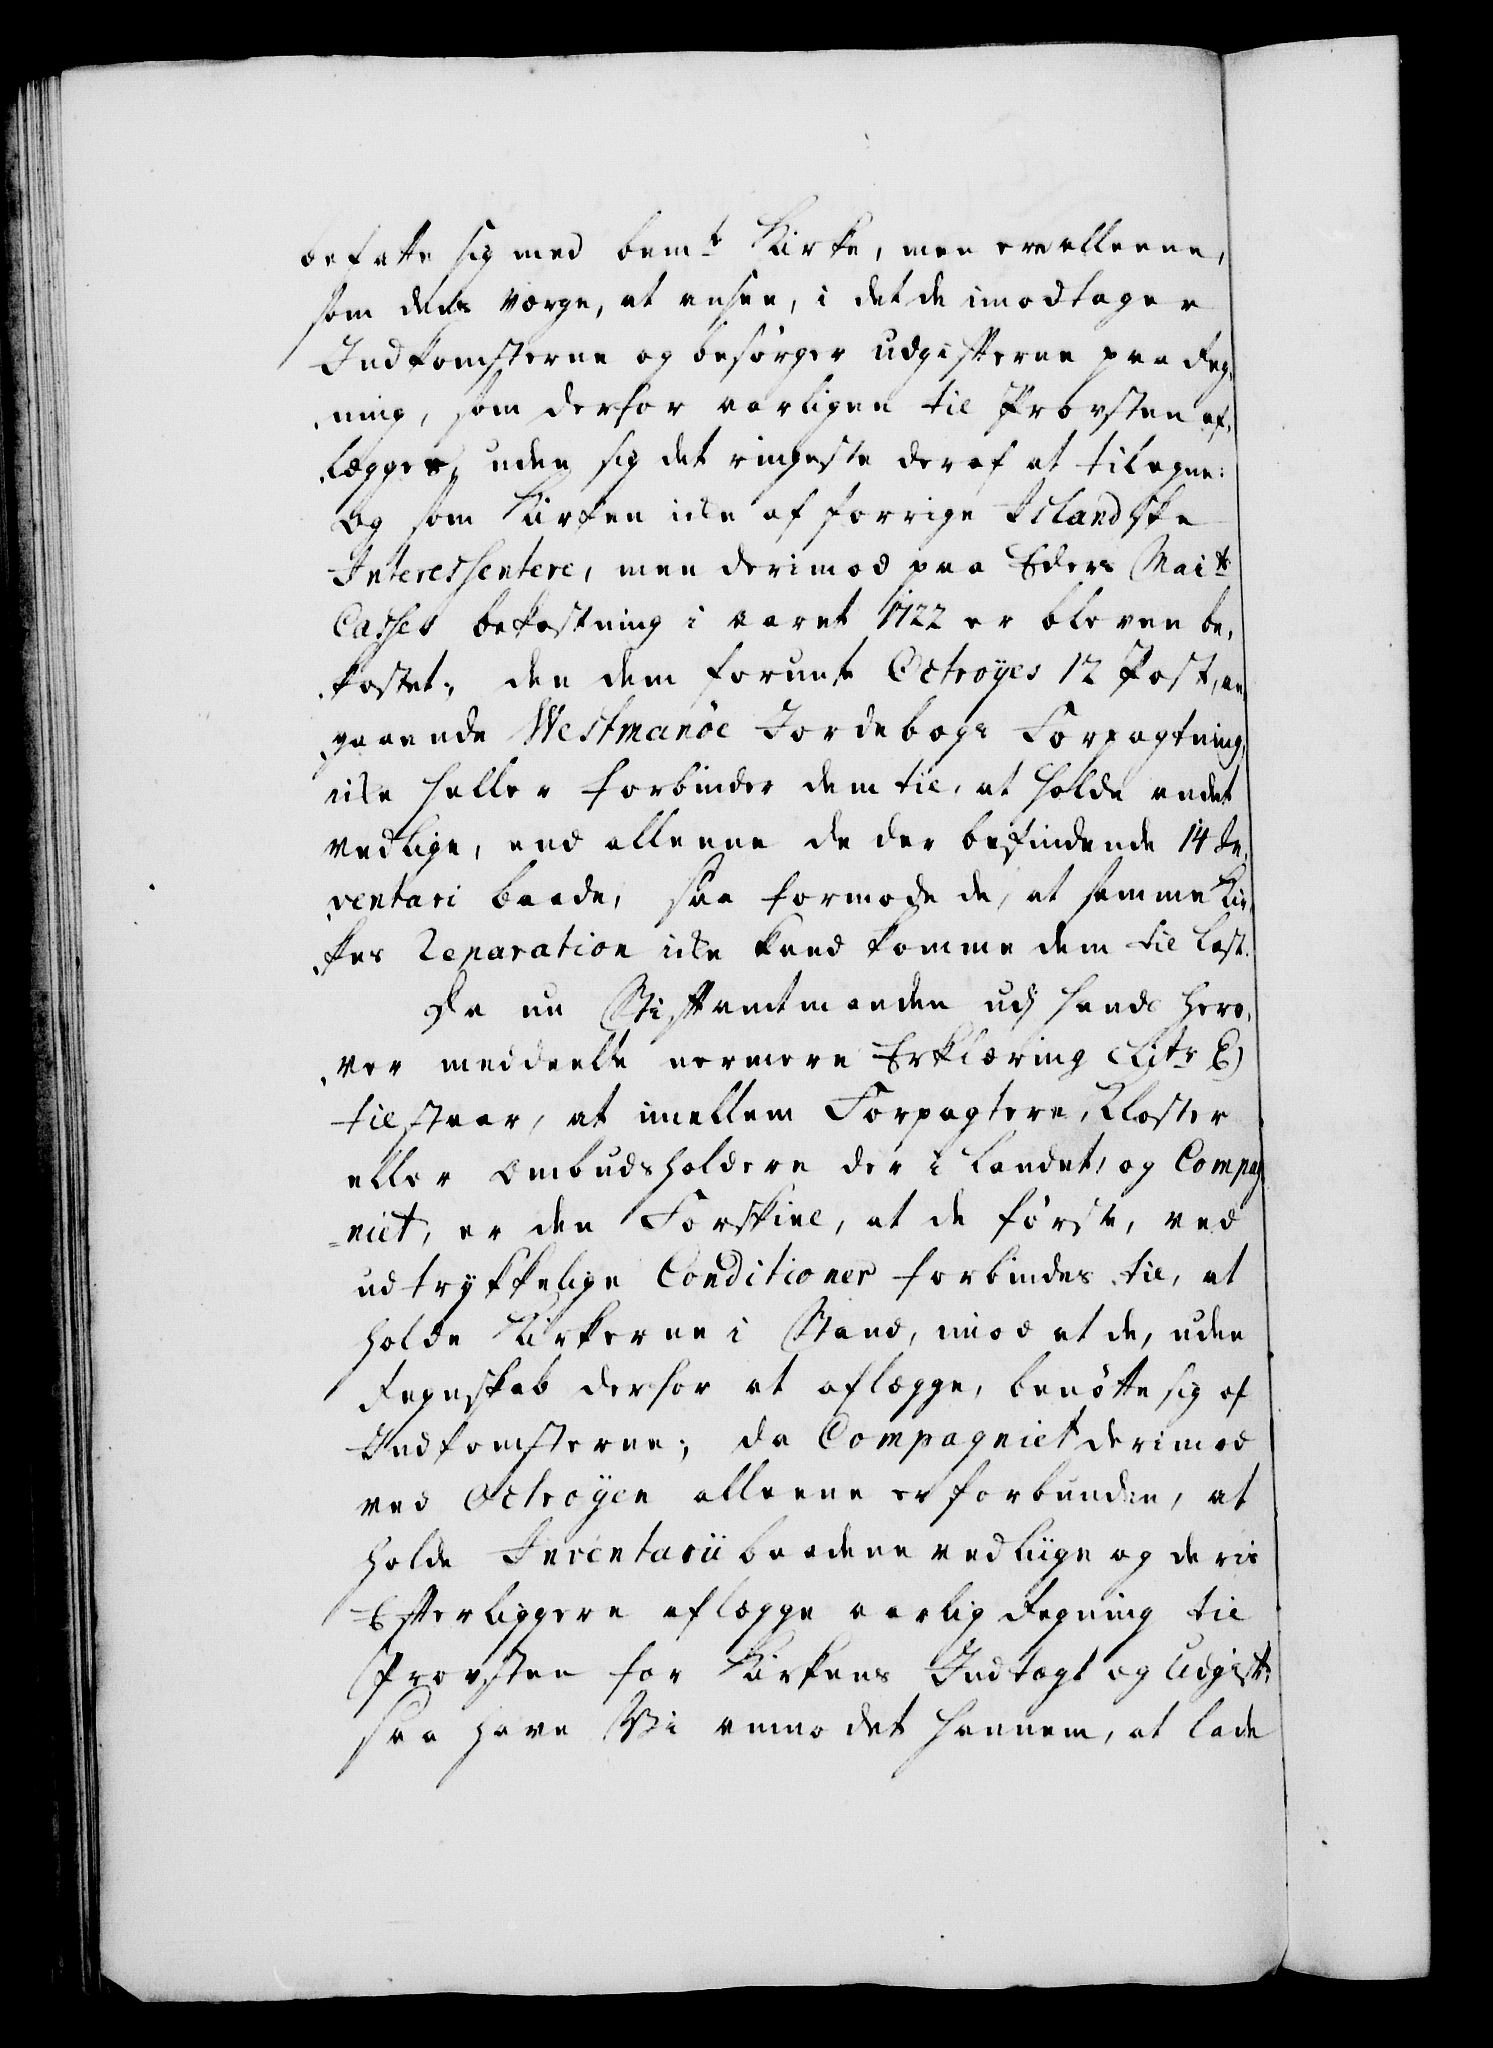 befatte sig med bem.te Kirke, men ere alleene,
som dens Værge, at ansee, i det de imodtager
Indkomsterne og besørger udgifterne paa Reg,
ning, som derfor aarligen til Provsten af,
lægges, uden sig det ringeste deraf at tilegne:
Og som Kirken icke af forrige Islandske
Interessentere, men derimod paa Eders Mai.ts
Casses bekostning i aaret 1722 er bleven be,
kostet; den dem forunte Octroyes 12 Post, an
gaaende Westmanöe Jordebogs Forpagtning,
icke heller forbinder dem til, at holde andet
vedlige, end alleene de der befindende 14 In,
ventari baade, saa formode de, at samme Kir,
kes Reparation icke kand komme dem til last.
Da nu Stiftamtmanden udj hands hero,
ver meddeelte nermere Erklæring (Litr E)
tilstaar, at imellem Forpagtere, Kloster
eller Ombudsholdere der i Landet, og Compag
niet, er den Forskiel, at de første, ved
udtrykkelige Conditioner forbindes til, at
holde Kirkerne i Stand, imod at de, uden
Regnskab derfor at aflægge, benøtte sig af
Indkomsterne; da Compagniet derimod
ved Octroyen alleene er forbunden, at
holde Inventarii baadene vedliige og deris
Efterliggere aflægge aarlig Regning til
Provsten for Kirkens Indtægt og Udgift;
saa have Vi anmodet hannem, at lade